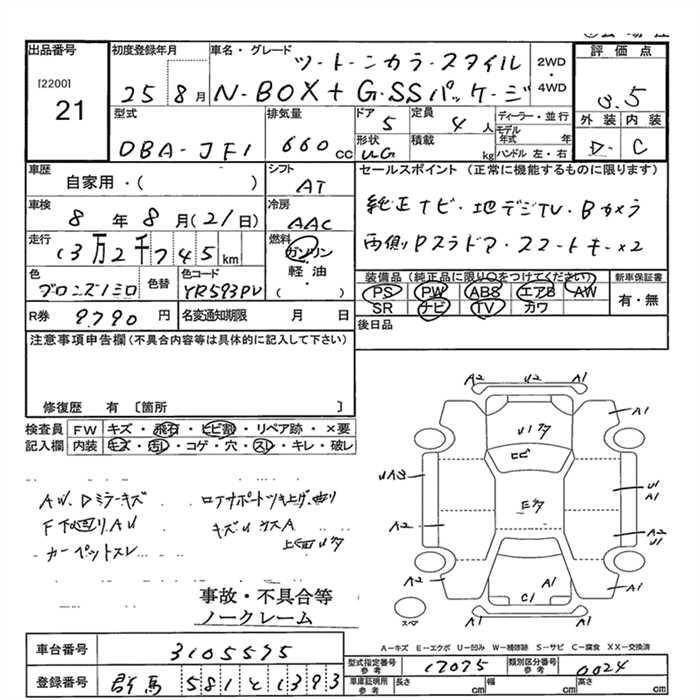 出品番号
[2200]
21
初度登録年月
25 8月
車名・グレード
ツートーンカラースタイル
N-BOX+ G・SSパッケージ
2WD
・
4WD
評価点
3.5
外装 内装
D C
型式
DBA-JF1
排気量
660cc
ドア
5
定員
4人
ディーラー・並行
モデル年式 年
形状
UG
積載
kg
ハンドル 左・右
車歴
自家用・( )
シフト
AT
セールスポイント (正常に機能するものに限ります)
純正ナビ・地デジTV・Bカメラ
両側Pスラドア・スマートキー×2
車検
8年 8月(21日)
冷房
AAC
走行
13万2千745km
燃料
ガソリン
軽・油
( )
色
ブロンズ/ミロ
色替
色コード
YR593PV
装備品 (純正品に限り○をつけてください)
PS PW ABS エアB AW
SR ナビ TV カワ
新車保証書
有・無
R券
9,790円
名変通知期限
月 日
後日品
注意事項申告欄(不具合内容等は具体的に記入して下さい)
修復歴 有 〔箇所 〕
検査員記入欄
FW キズ・飛石・ヒビ割・リペア跡・×要
内装 キズ・汚レ・コゲ・穴・スレ・キレ・破レ
AW、Dミラーキズ
F下回り、AU
カーペットスレ
ロアサポートツキ上げ曲り
事故・不具合等
ノークレーム
A2 U2 A1
A1
ヒビ
UA3
U1
A1
A2
A2
U1
A2
A1
A1
C1
A1
A1
スペア
A-キズ E-エクボ U-凹み W-補修跡 S-サビ C-腐食 XX-交換済
車台番号
3105575
登録番号
群馬 581 と 1393
型式指定番号
参考
17075
類別区分番号
参考
0024
車庫証明用
参考
長さ cm
幅 cm
高さ cm